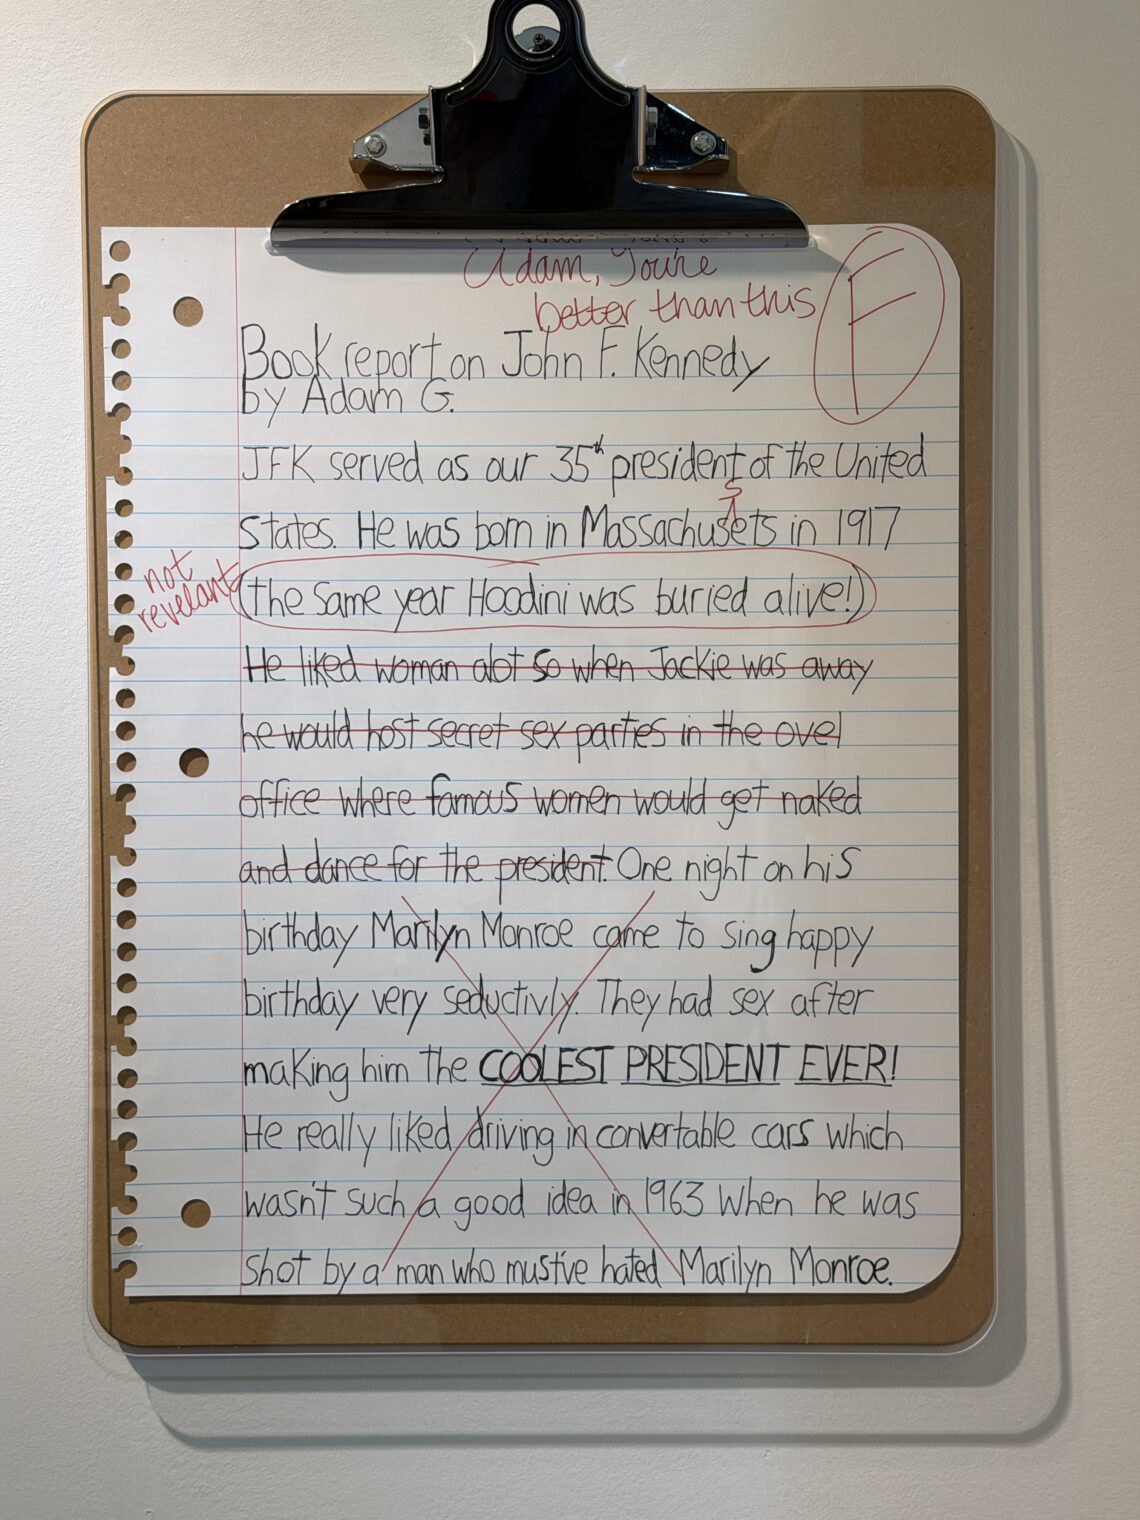 Adam, You're
better than this
F
Book report on John F. Kennedy
by Adam G.
JFK served as our 35th president of the United
States. He was born in Massachusets in 1917
s
not
revelant
(the same year Hoodini was buried alive!)
He liked woman alot so when Jackie was away
he would host secret sex parties in the ovel
office where famous women would get naked
and dance for the president. One night on his
birthday Marilyn Monroe came to sing happy
birthday very seductivly. They had sex after
making him the COOLEST PRESIDENT EVER!
He really liked driving in convertable cars which
wasn't such a good idea in 1963 when he was
shot by a man who must've hated Marilyn Monroe.